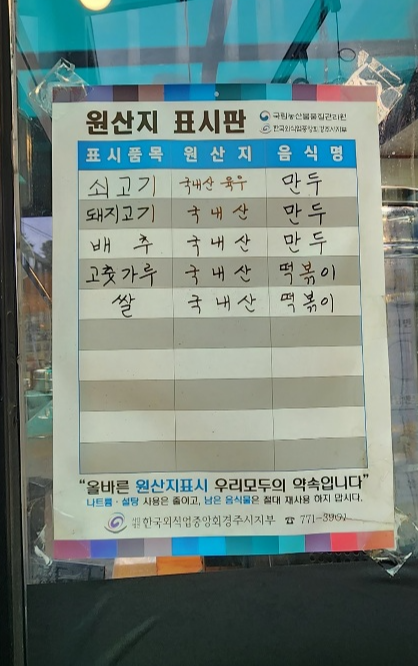 원산지 표시판
국립농산물품질관리원
한국외식업중앙회경주시지부
표시품목 원산지 음식명
쇠고기 국내산 육우 만두
돼지고기 국내산 만두
배추 국내산 만두
고춧가루 국내산 떡볶이
쌀 국내산 떡볶이
“올바른 원산지표시 우리모두의 약속입니다”
나트륨·설탕 사용은 줄이고, 남은 음식물은 절대 재사용 하지 맙시다.
한국외식업중앙회경주시지부 ☎ 771-3901